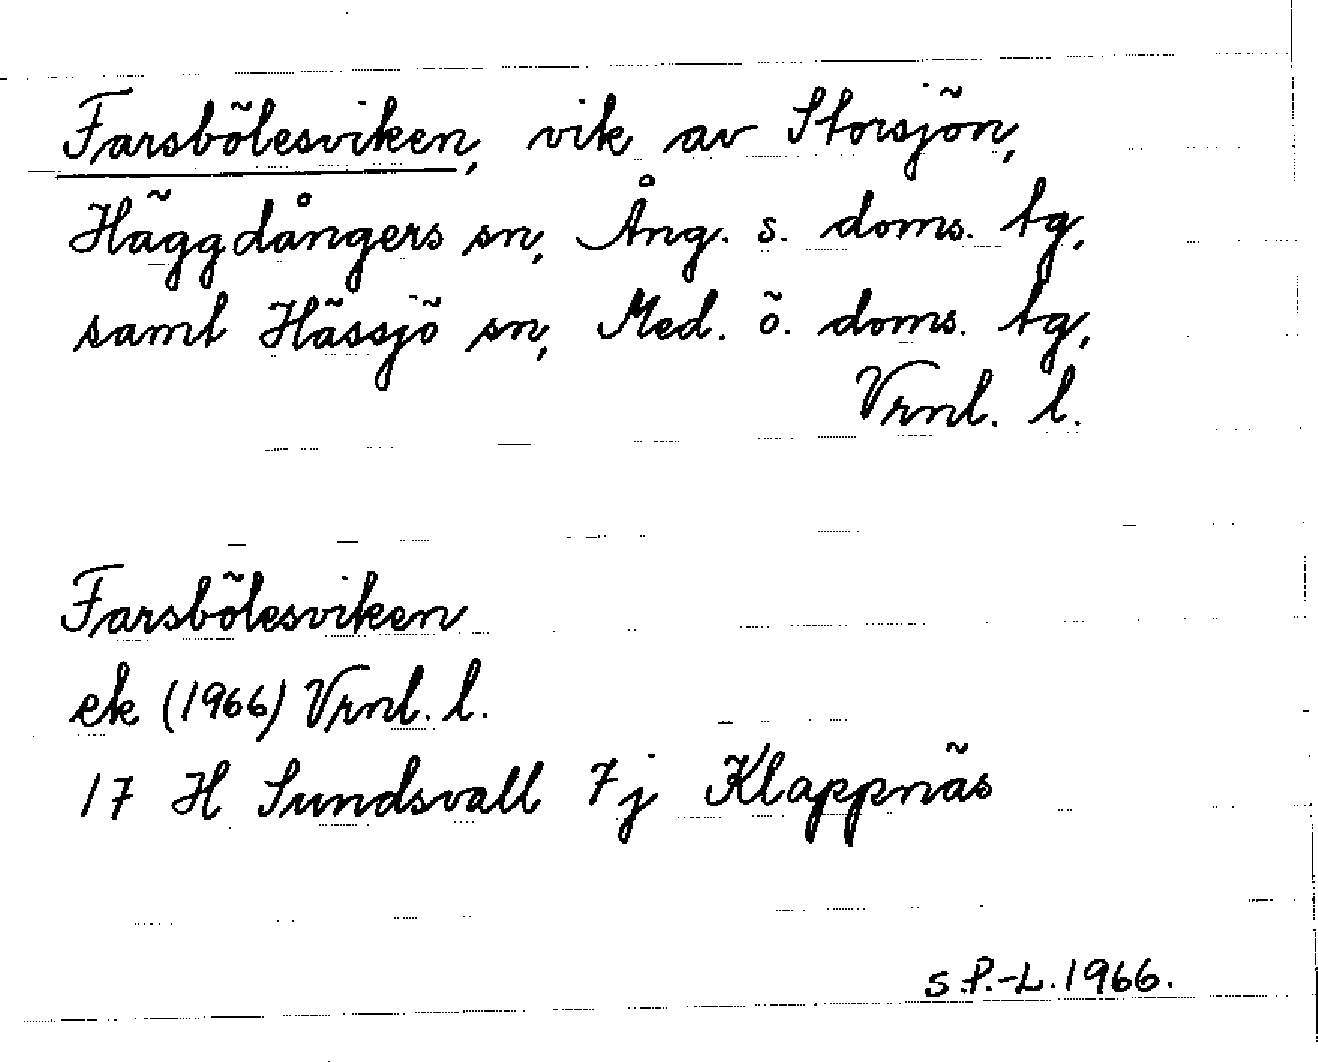 Farsbölesviken, vik av Storsjön,
Häggdångers sn, Ång. s. doms. tg,
samt Hässjö sn, Med. ö. doms. tg,
Vrnl. l.
Farsbölesviken
ek (1966) Vrnl. l.
17 H Sundsvall 7j Klappnäs
S.P.-L. 1966.